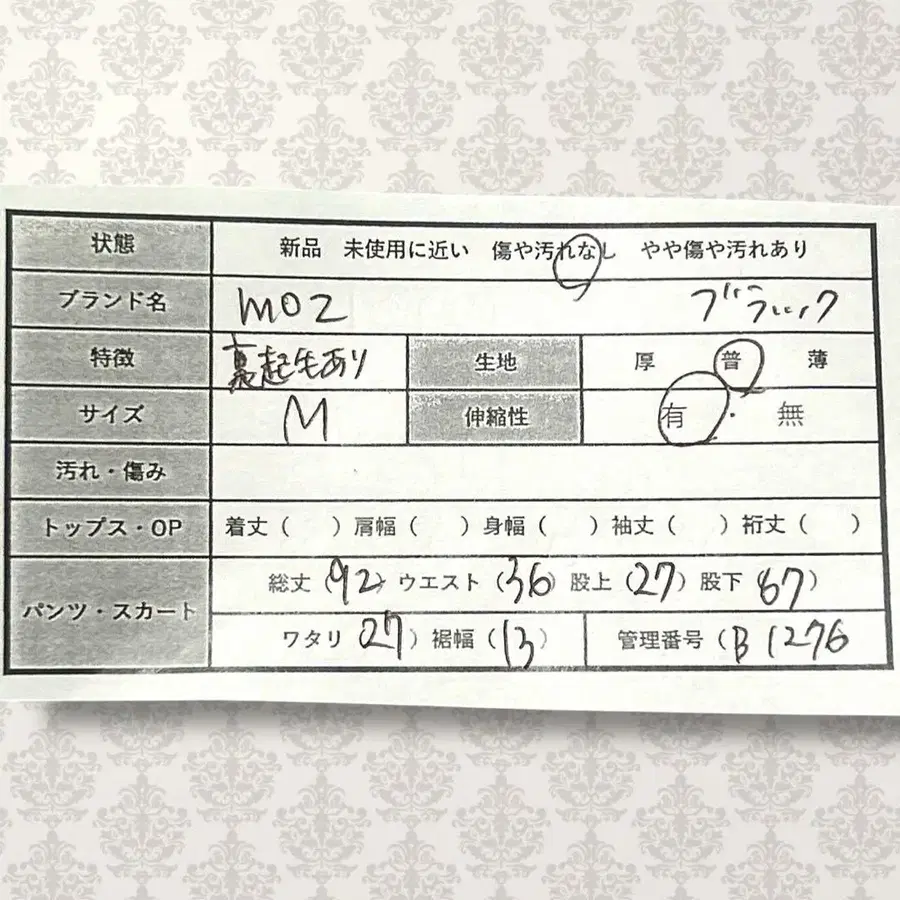 状態 新品 未使用に近い 傷や汚れなし やや傷や汚れあり
ブランド名 moz ブラック
特徴 裏起毛あり 生地 厚 普 薄
サイズ M 伸縮性 有・無
汚れ・傷み
トップス・OP 着丈( ) 肩幅( ) 身幅( ) 袖丈( ) 裄丈( )
パンツ・スカート 総丈(92) ウエスト(36) 股上(27) 股下(67)
ワタリ 27) 裾幅(13) 管理番号(B1276